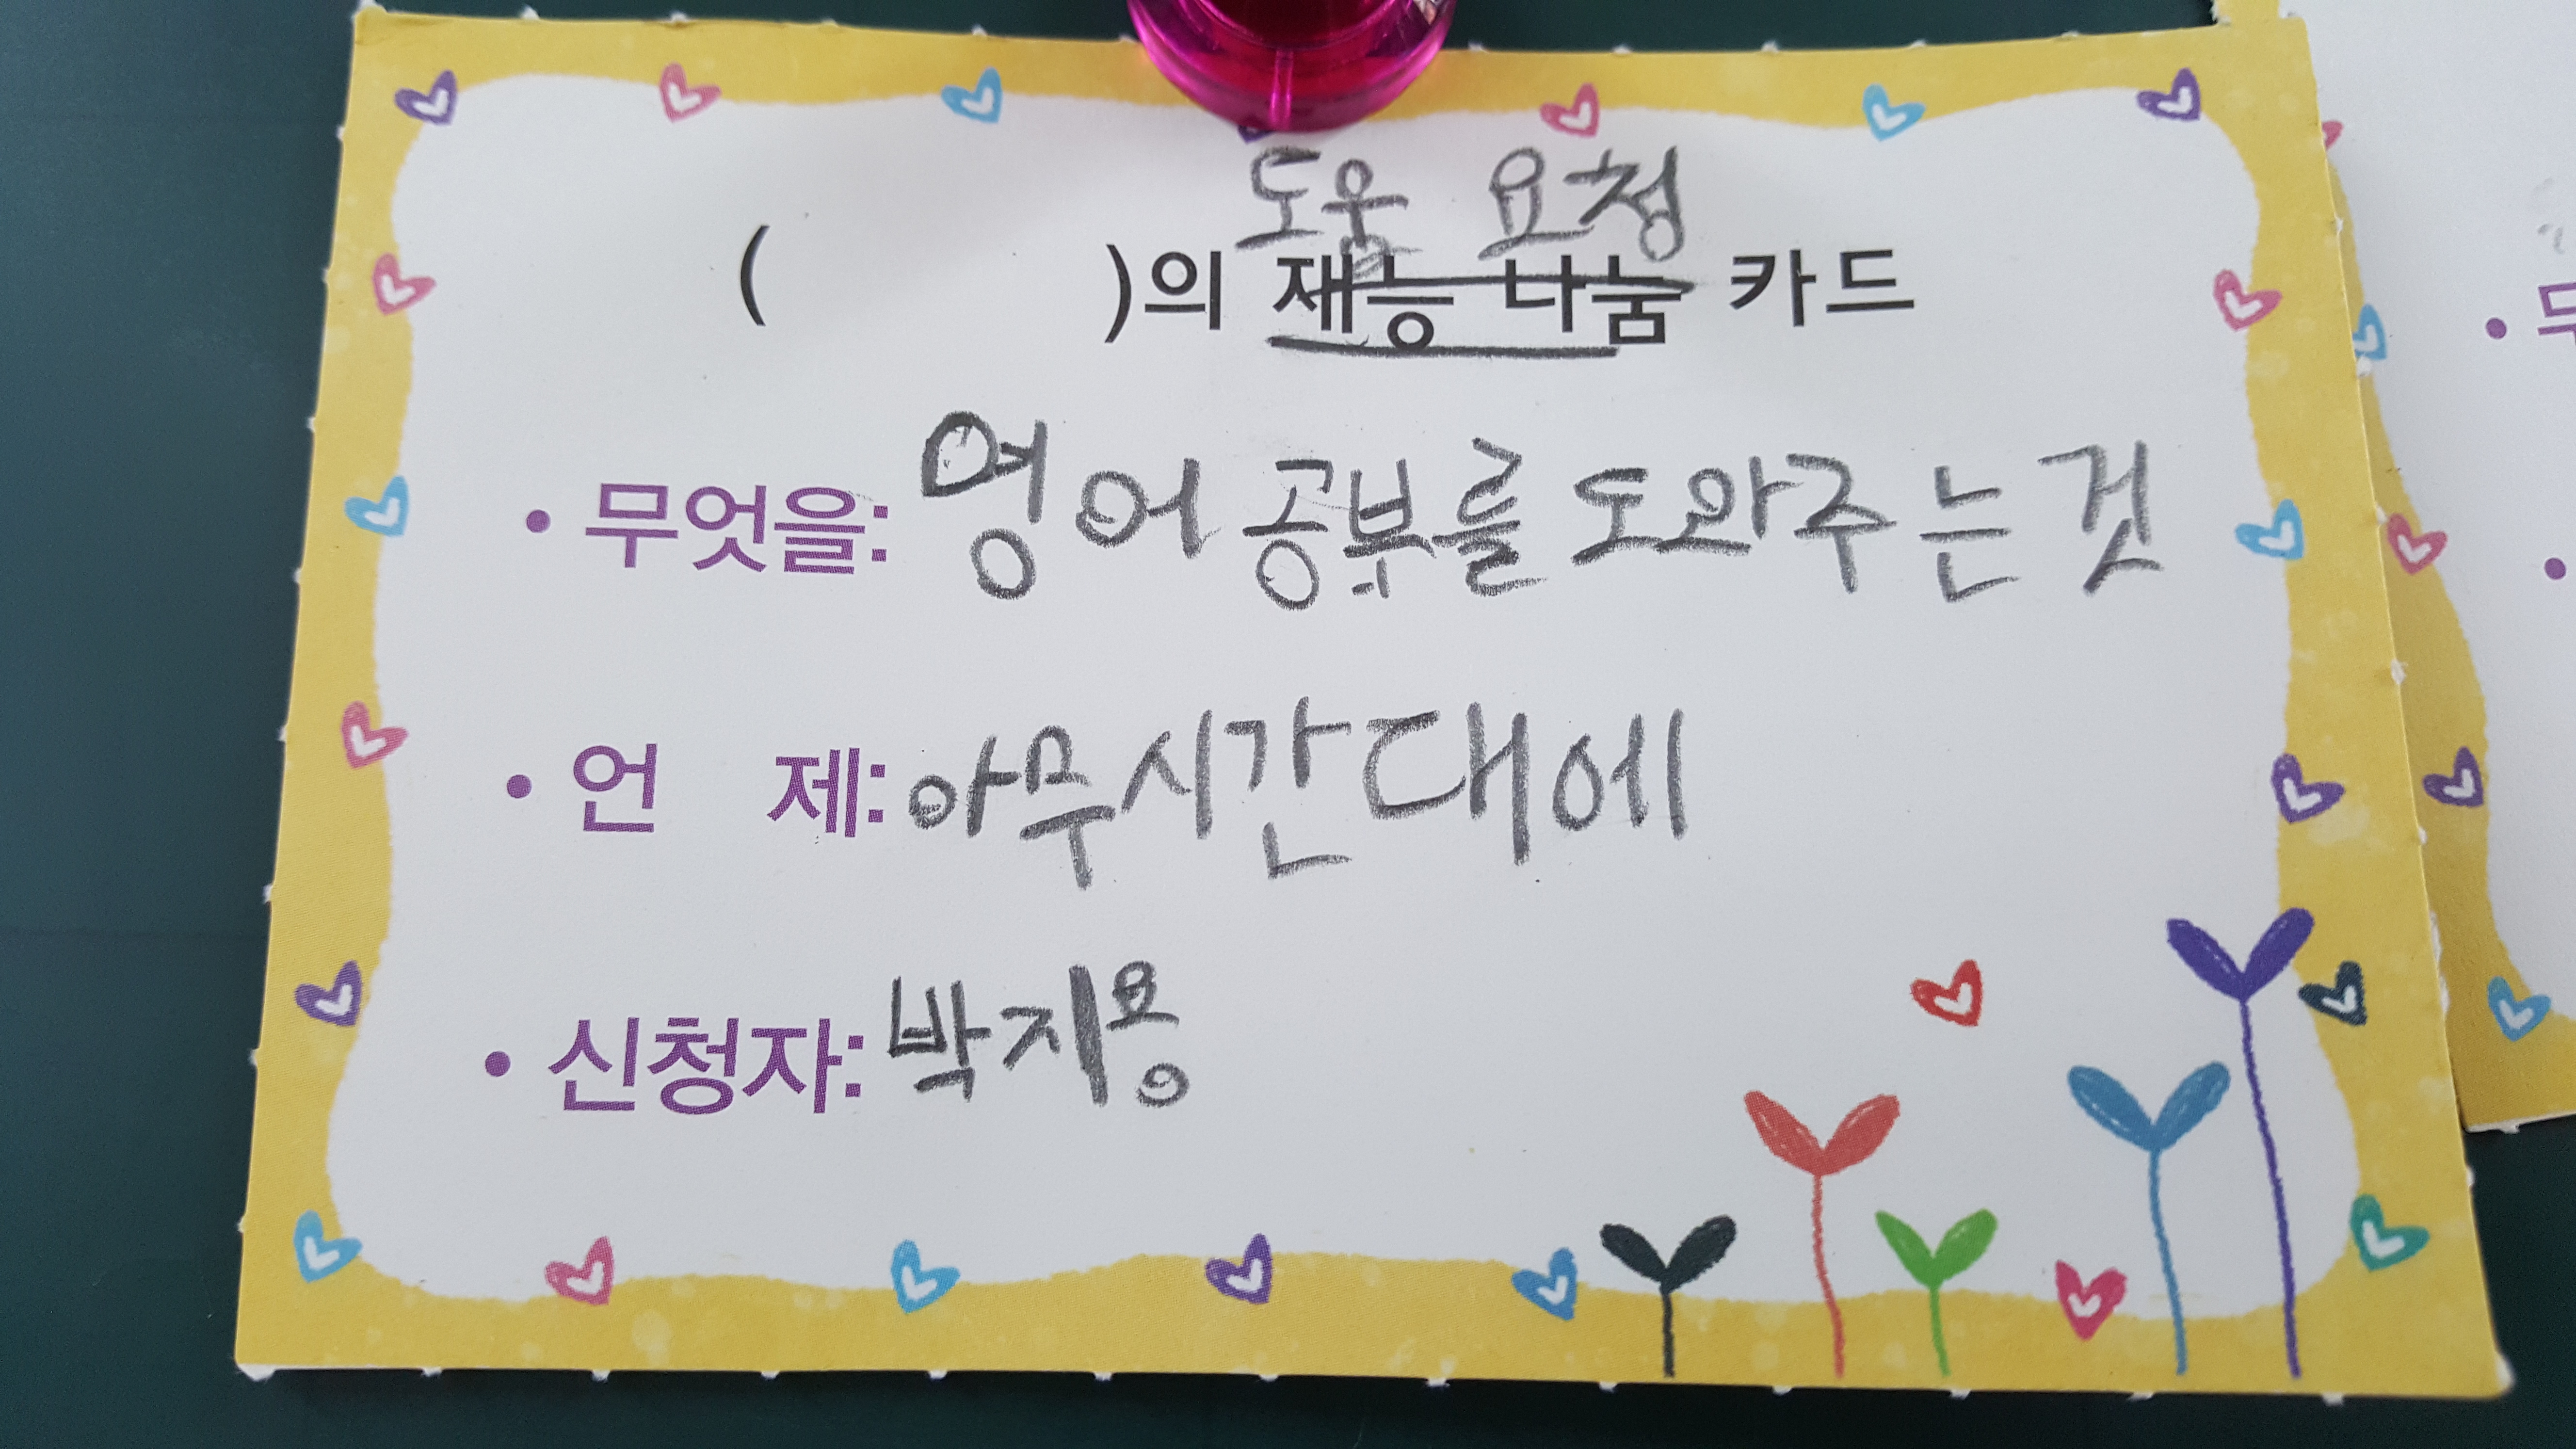 도움 요청
( )의 재능 나눔 카드
• 무엇을: 영어 공부를 도와주는 것
• 언 제: 아무시간대에
• 신청자: 박지용